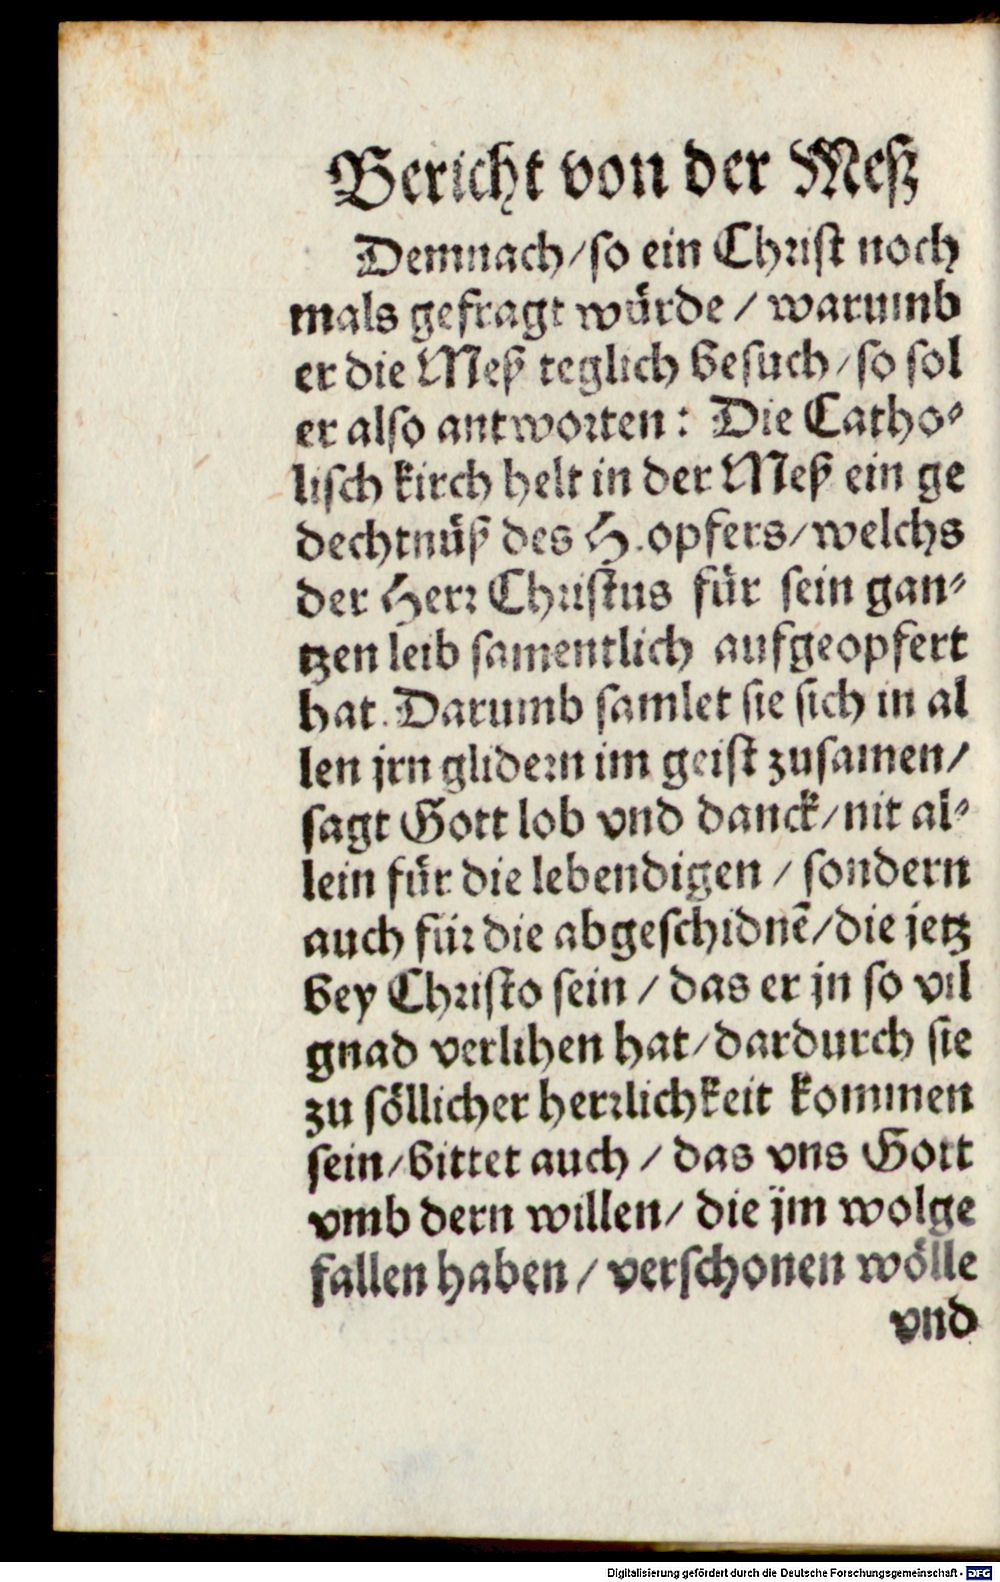 Bericht von der Meß
Demnach/so ein Christ noch
mals gefragt würde / warumb
er die Meß teglich besuch/so sol
er also antworten: Die Catho⸗
lisch kirch helt in der Meß ein ge
dechtnüß des H.opfers/welchs
der Herr Christus für sein gan⸗
tzen leib samentlich aufgeopfert
hat. Darumb samlet sie sich in al
len jrn glidern im geist zusamen/
sagt Gott lob vnd danck/nit al⸗
lein für die lebendigen / sondern
auch für die abgeschidnē/die jetz
bey Christo sein / das er jn so vil
gnad verlihen hat/dardurch sie
zu söllicher herrlichkeit kommen
sein/bittet auch / das vns Gott
vmb dern willen/ die jm wolge
fallen haben / verschonen wölle
vnd
Digitalisierung gefördert durch die Deutsche Forschungsgemeinschaft - DFG